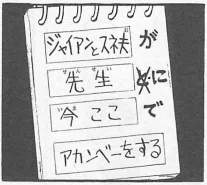 ジャイアンとスネ夫が
先生に
今ここで
アカンベーをする